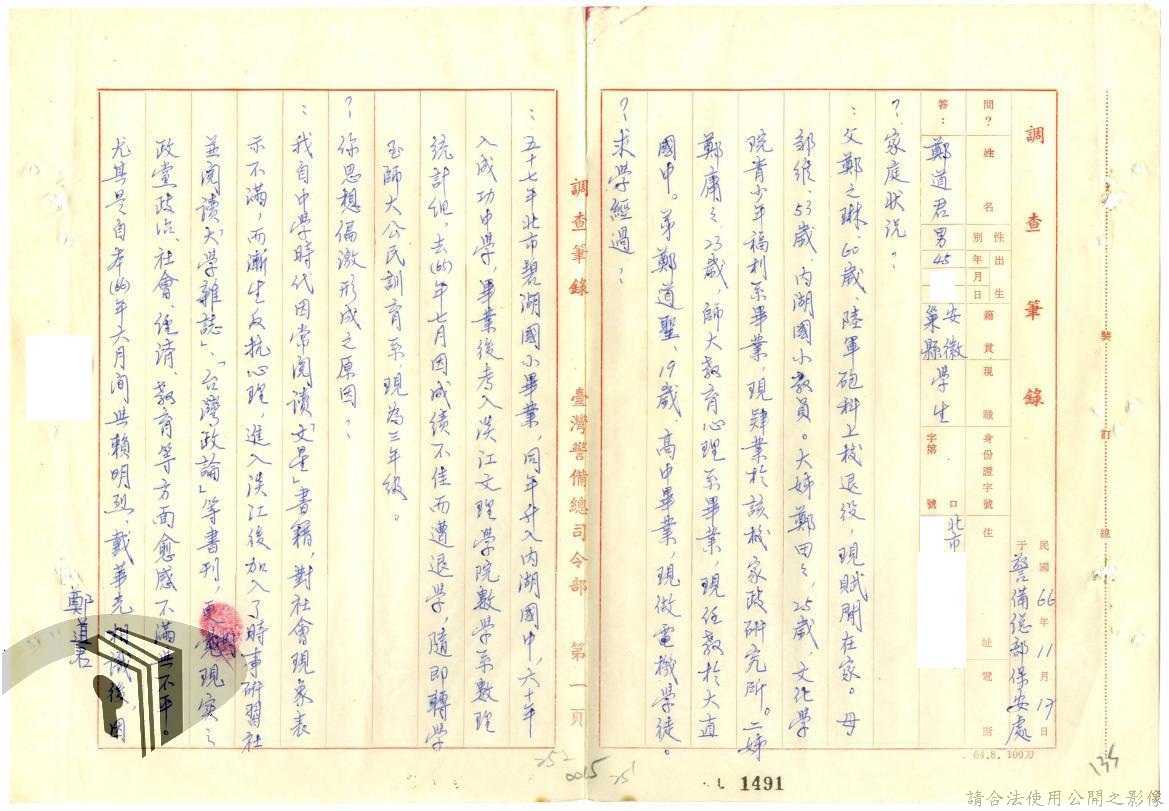 調查筆錄
民國66年11月17日
于警備總部保安處
問?
答:
姓名
性別
出生年月日
籍貫
現職
身份證字號
住址
電話
鄭道君
男
45
安徽
巢縣
學生
字第
口
號
北市
?家庭狀況?
:父鄭之琳、60歲、陸軍砲科上校退役,現賦閒在家。母
部維、53歲、內湖國小教員。大姊鄭田々,25歲,文化學
院青少年福利系畢業,現肄業於該校家政研究所。二姊
鄭庸々、23歲、師大教育心理系畢業,現任教於大直
國中。弟鄭道聖,19歲、高中畢業,現做電機學徒。
?求學經過?
調查筆錄 臺灣警備總司令部 第一頁
:五十七年北市碧湖國小畢業,同年升入內湖國中,六十年
入成功中學,畢業後考入淡江文理學院數學系數理
統計組,去(65)年七月因成績不佳而遭退學,隨即轉學
至師大公民訓育系,現為三年級。
?你思想偏激形成之原因?
:我自中學時代因常閱讀「文星」書籍,對社會現象表
示不滿,而漸生反抗心理,進入淡江後加入了時事研習社
並閱讀「大學雜誌」、「台灣政論」等書刊,更覺現實之
政黨政治、社會、經濟、教育等方面愈感不滿與不平。
尤其是自本(66)年六月間與賴明烈、戴華光相識後,因
鄭道君
裝訂線
64.8.100万
1491
0015
251
252
135
請合法使用公開之影像